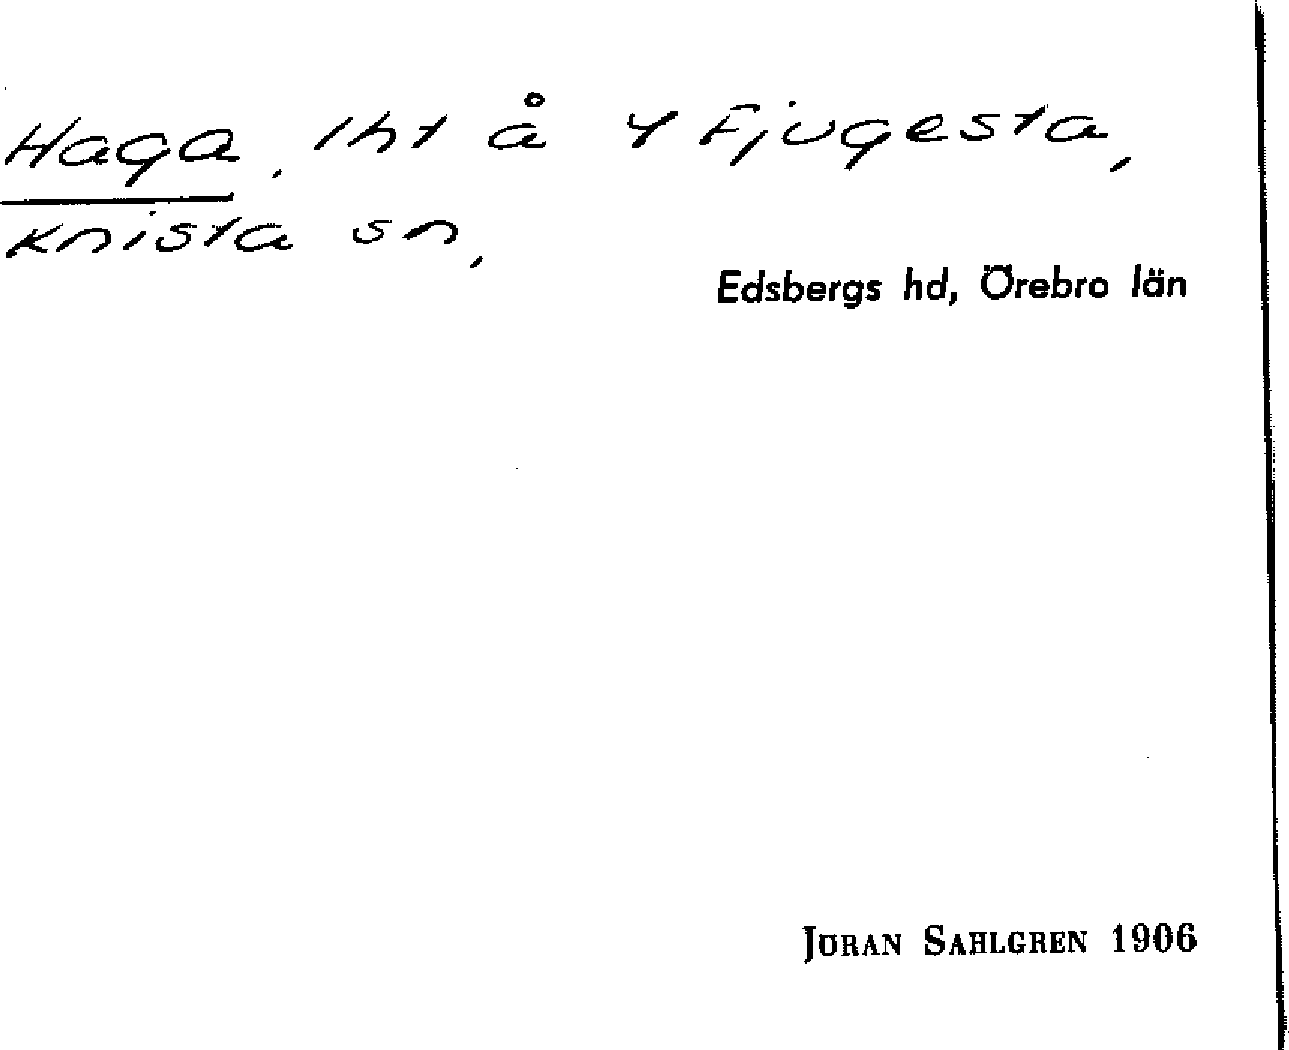 Haga, lht å Y Fjugesta,
Knista sn,
Edsbergs hd, Örebro län
JÖRAN SAHLGREN 1906